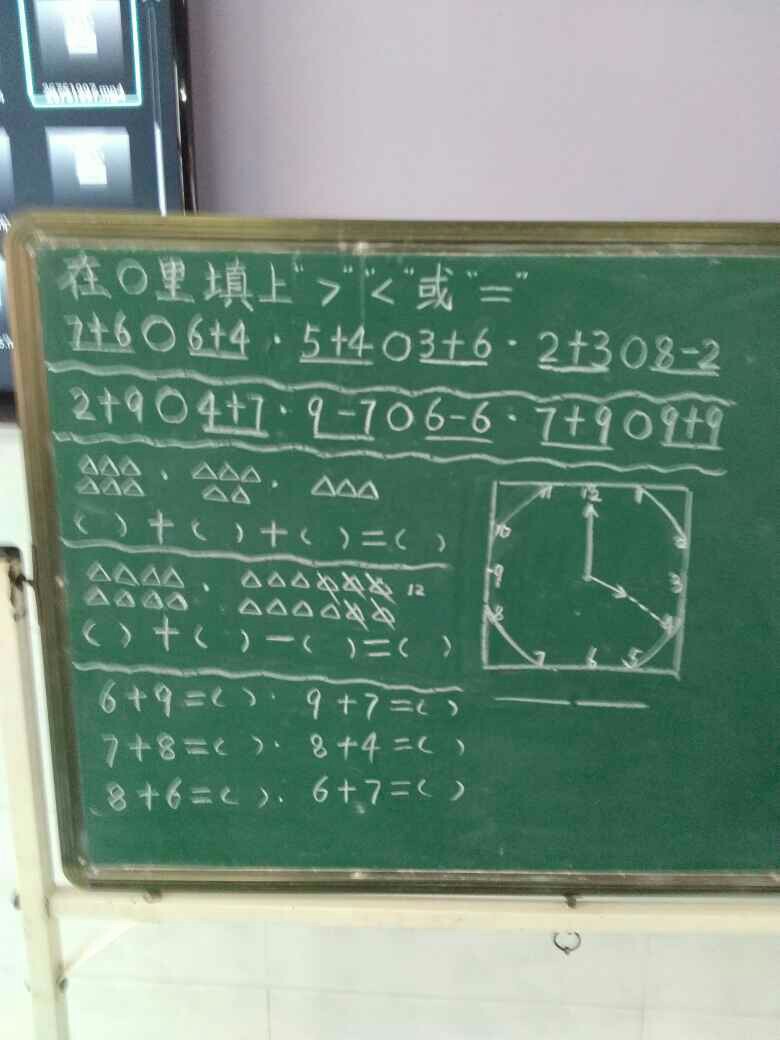 在○里填上">""<"或"="
7+6○6+4·5+4○3+6·2+3○8-2
2+9○4+7·9-7○6-6·7+9○9+9
( )+( )+( )=( )
12
( )+( )-( )=( )
6+9=( )·9+7=( )
7+8=( )·8+4=( )
8+6=( )·6+7=( )
11 12 1
10 2
9 3
8 4
7 6 5